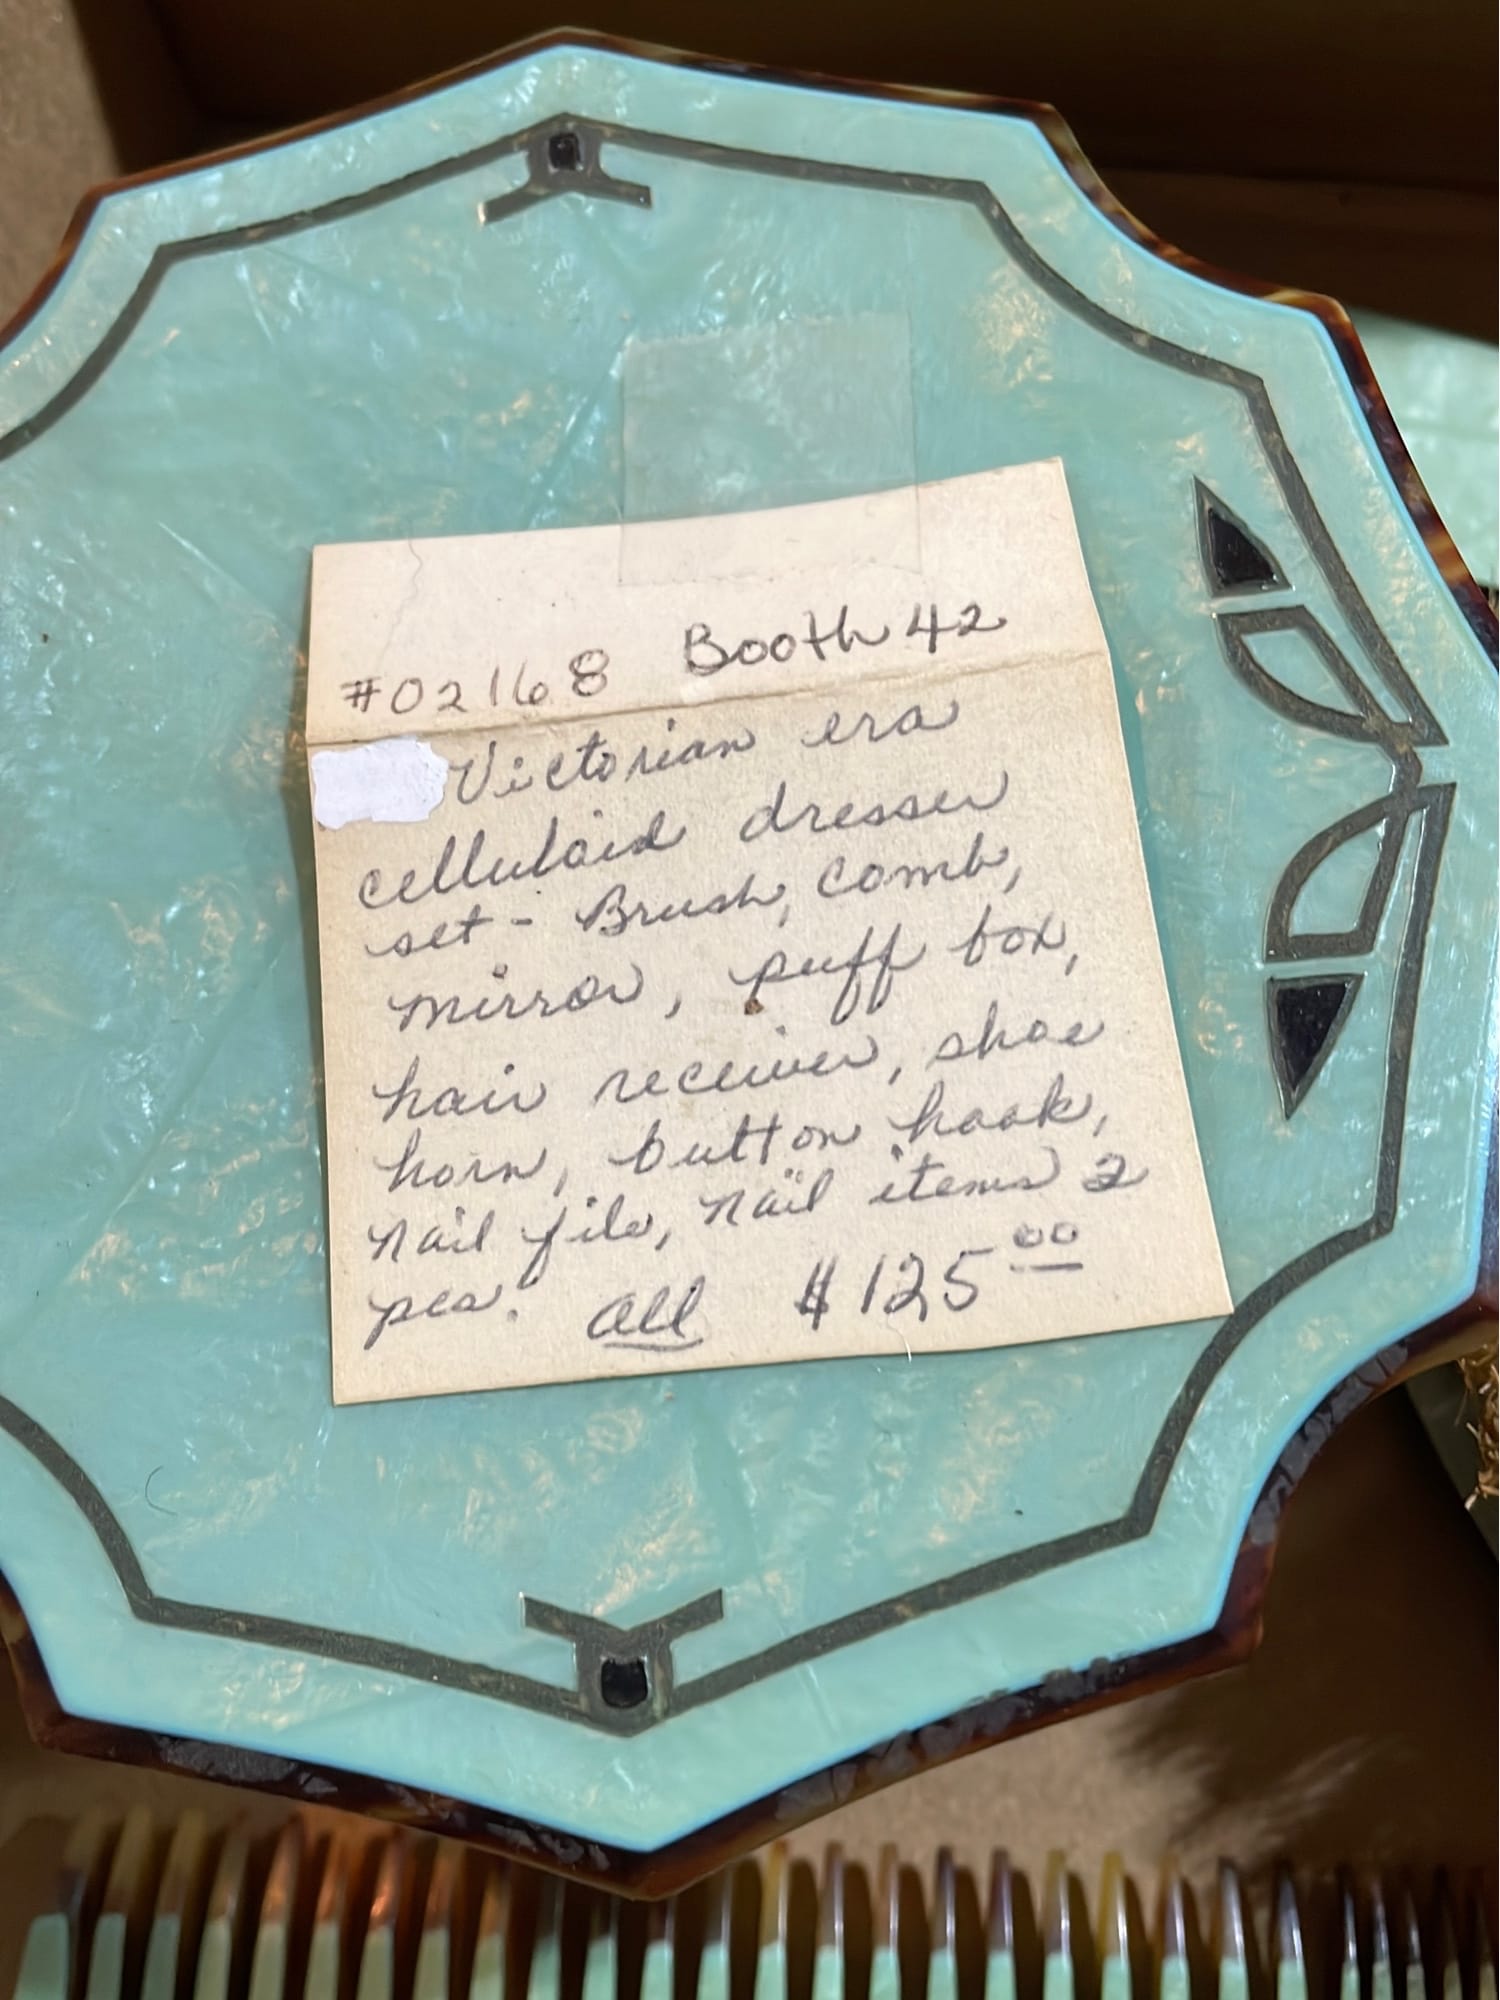 #02168 Booth 42
Victorian era
celluloid dresser
set - Brush, comb,
mirror, puff box,
hair receiver, shoe
horn, button hook,
nail file, nail items 2
pcs. All $125.00